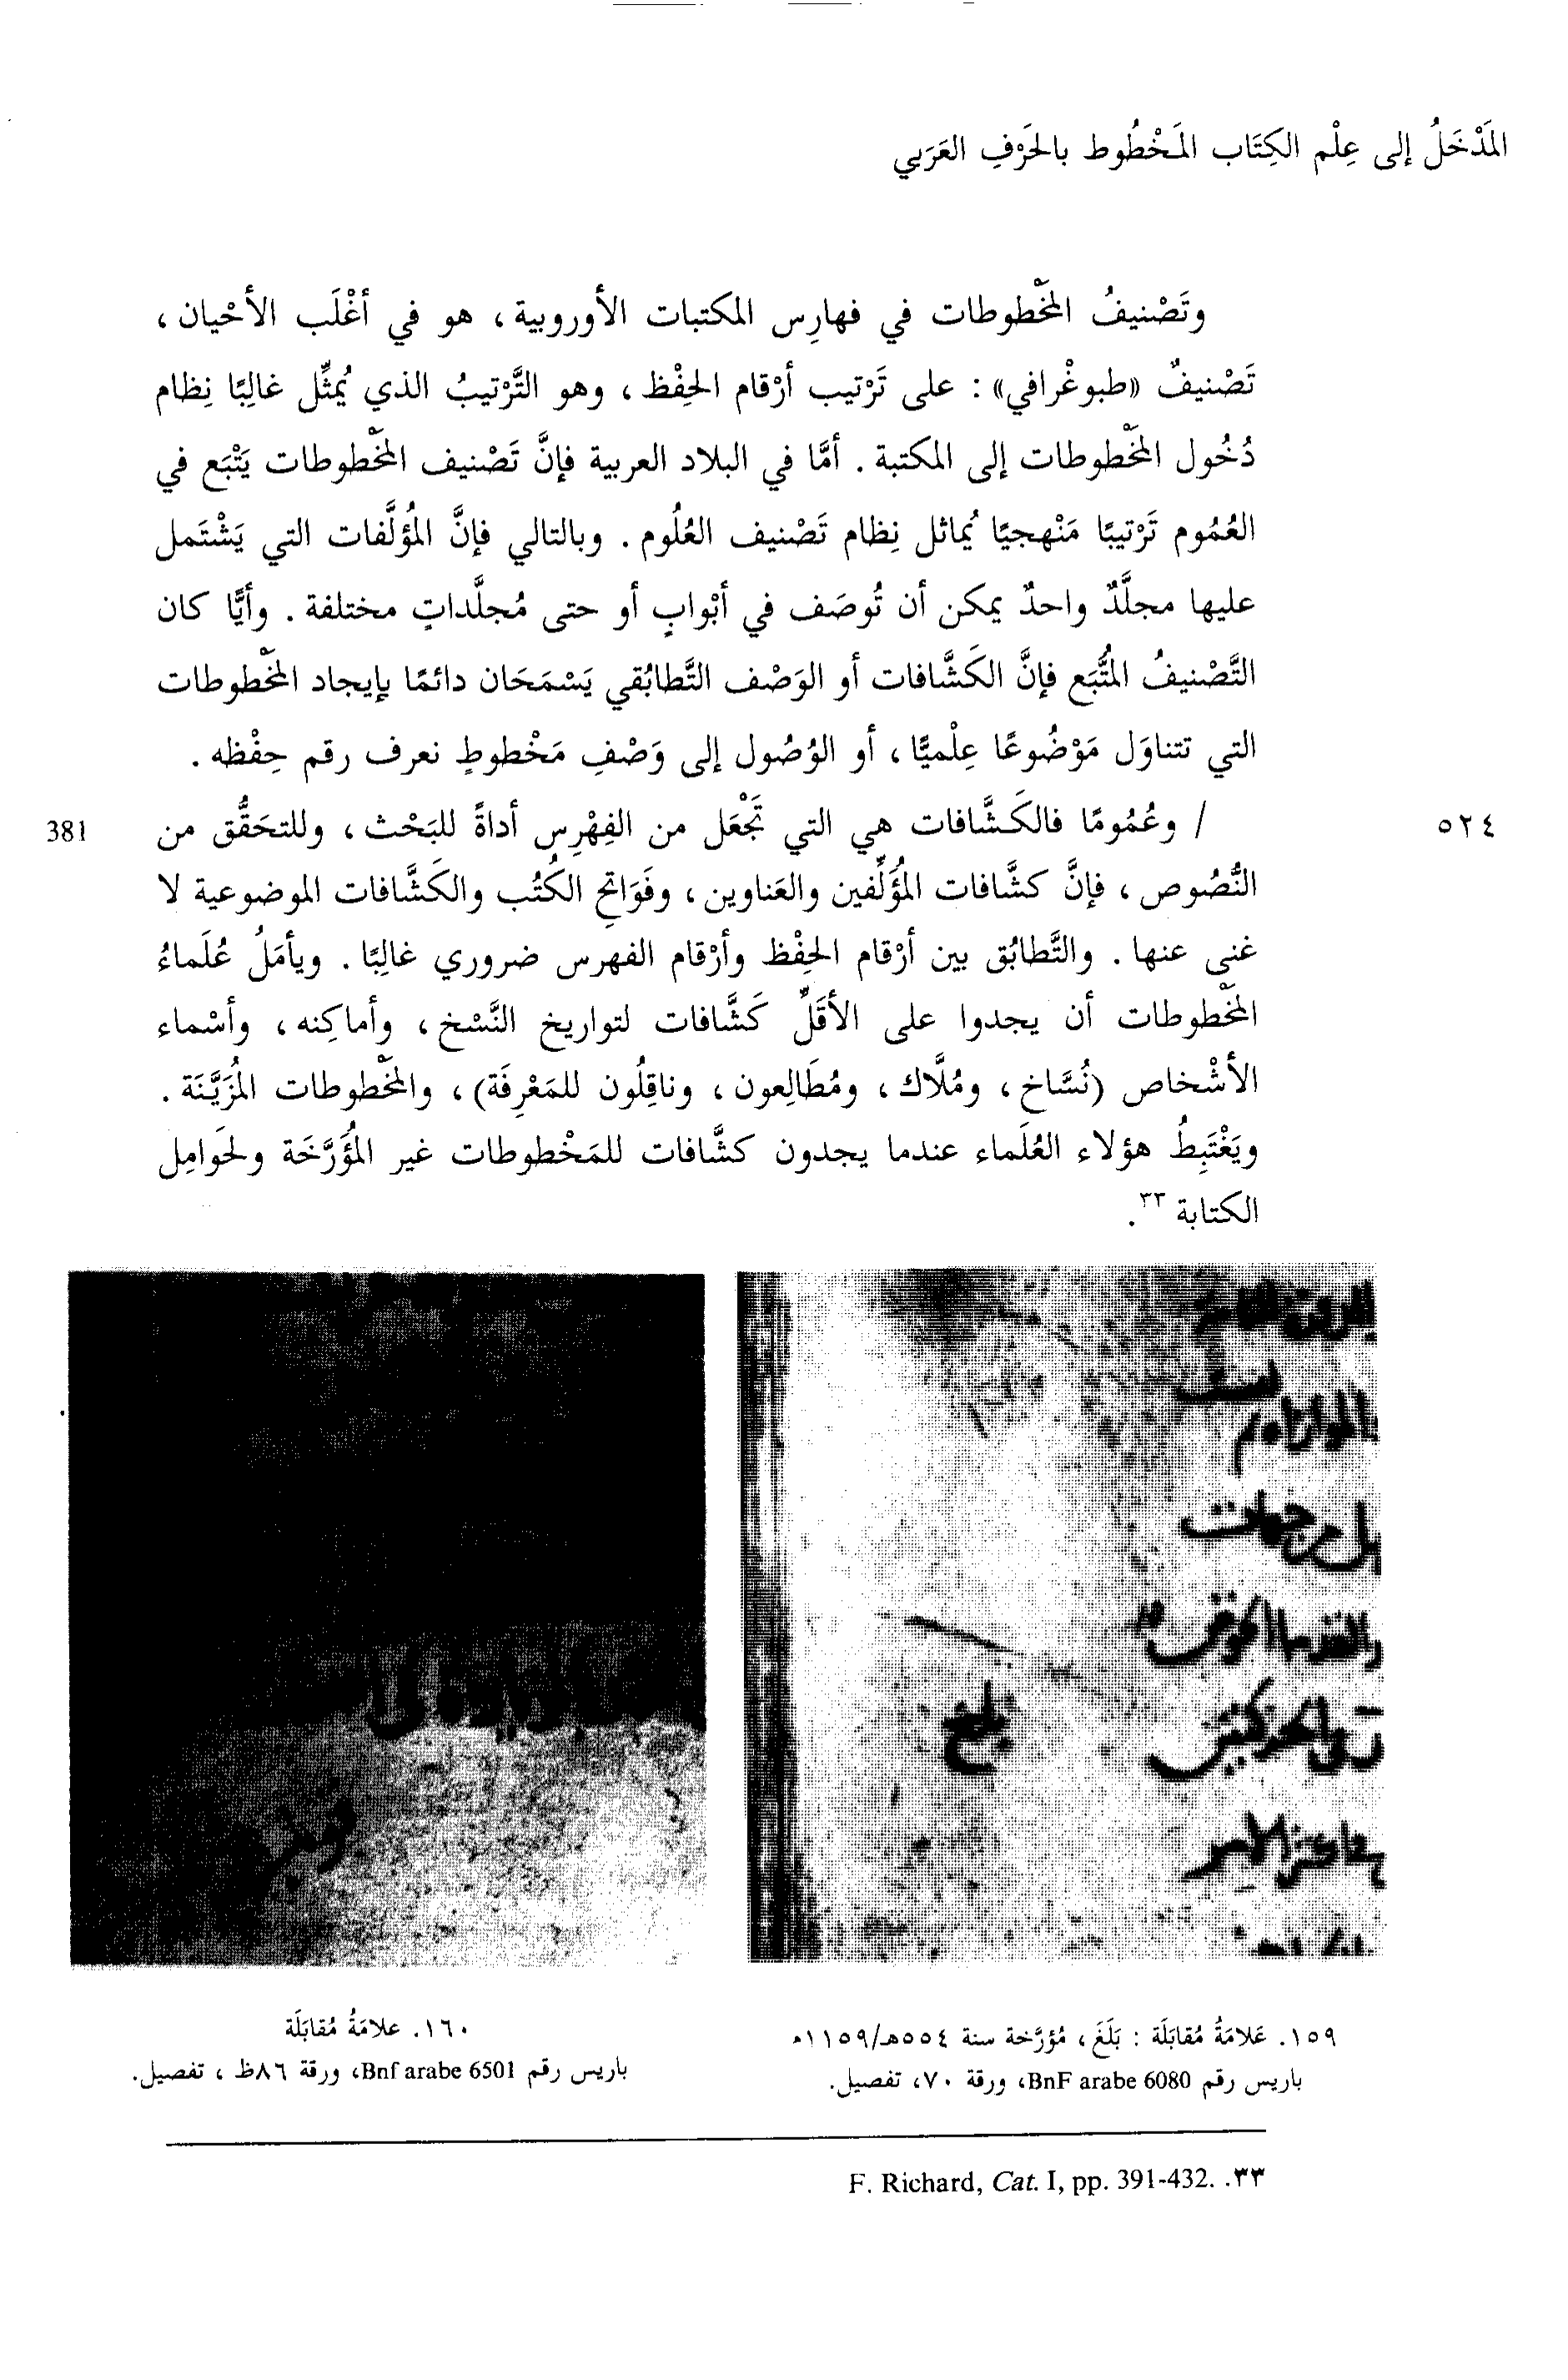 المَدْخَلُ إلى عِلْم الكِتَاب المَخْطُوط بالحَرْفِ العَرَبي
وتَصْنيفُ المَخْطوطات في فهارِس المكتبات الأوروبية، هو في أغْلَب الأحْيان،
تَصْنيفٌ «طبوغْرافي» : على تَرْتيب أرْقام الحِفْظ، وهو التَّرْتيبُ الذي يُمثِّل غالِبًا نِظام
دُخُول المَخْطوطات إلى المكتبة. أمَّا في البلاد العربية فإنَّ تَصْنيف المَخْطوطات يَتْبَع في
العُمُوم تَرْتيبًا مَنْهجيًا يُماثل نِظام تَصْنيف العُلُوم. وبالتالي فإنَّ المُؤلَّفات التي يَشْتَمل
عليها مجلَّدٌ واحدٌ يمكن أن تُوصَف في أبْوابٍ أو حتى مُجلَّداتٍ مختلفة. وأيًّا كان
التَّصْنيفُ المُتَّبَع فإنَّ الكَشَّافات أو الوَصْف التَّطابُقي يَسْمَحَان دائمًا بإيجاد المَخْطوطات
التي تتناوَل مَوْضُوعًا عِلْميًّا، أو الوُصُول إلى وَصْفِ مَخْطوطٍ نعرف رقم حِفْظه.
٥٢٤
/ وعُمُومًا فالكَشَّافات هي التي تَجْعَل من الفِهْرِس أداةً للبَحْث، وللتحَقُّق من
381
النُّصُوص، فإنَّ كشَّافات المُؤَلِّفين والعَناوين، وفَوَاتحِ الكُتُب والكَشَّافات الموضوعية لا
غنى عنها. والتَّطابُق بين أرْقام الحِفْظ وأرْقام الفهرس ضروري غالِبًا. ويأمَلُ عُلَماءُ
المَخْطوطات أن يجدوا على الأقَلِّ كَشَّافات لتواريخ النَّسْخ، وأماكِنه، وأسْماء
الأشْخاص (نُسَّاخ، ومُلَّاك، ومُطَالِعون، وناقِلُون للمَعْرِفَة)، والمَخْطوطات المُزَيَّنَة.
ويَغْتَبِطُ هؤلاء العُلَماء عندما يجدون كشَّافات للمَخْطوطات غير المُؤَرَّخَة ولحَوامِل
الكتابة ٣٣.
بلغ
١٥٩. عَلامَةُ مُقابَلَة : بَلَغَ، مُؤرَّخة سنة ٥٥٤هـ/١١٥٩م
باريس رقم BnF arabe 6080، ورقة ٧٠، تفصيل.
١٦٠. علامَةُ مُقابَلَة
باريس رقم Bnf arabe 6501، ورقة ٨٦ظ، تفصيل.
٣٣. F. Richard, Cat. I, pp. 391-432.